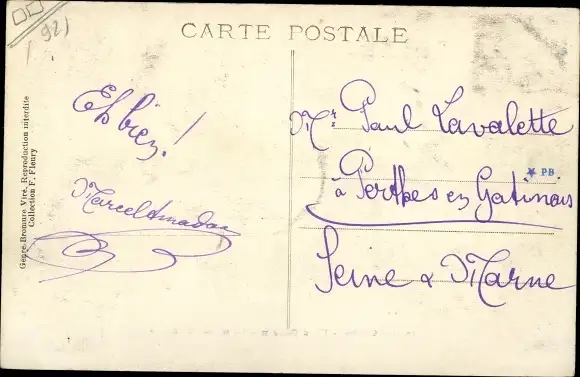 (92)
CARTE POSTALE
Eh bien !
Marcel Amadon
Mr. Paul Lavalette
à Perthes en Gatinais
Seine & Marne
★ PB
Genre Bromure Vire, Reproduction interdite
Collection F. Fleury